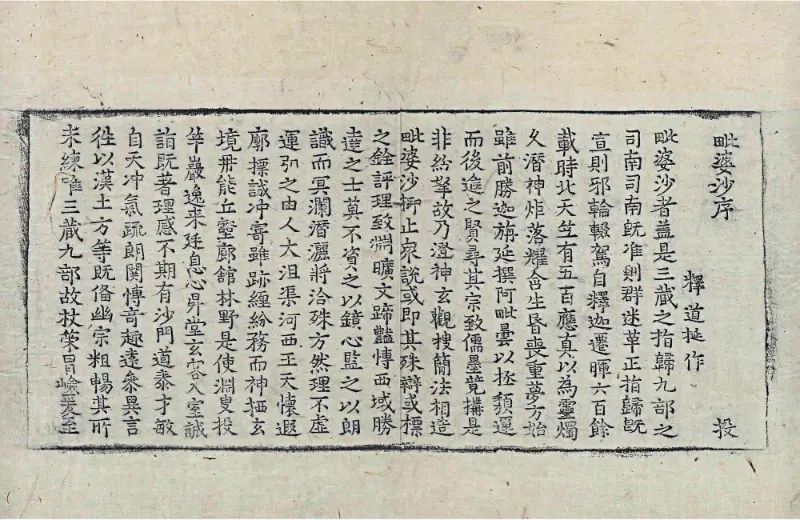 毗婆沙序 投
釋道挻作
毗婆沙者盖是三藏之指歸九部之
司南司南旣准則群迷革正指歸旣
宣則邪輪輟駕自釋迦遷暉六百餘
載時北天竺有五百應真以為靈燭
久潛神炬落耀含生昏喪重夢方始
雖前勝迦旃延撰阿毗曇以拯頽運
而後進之賢尋其宗致儒墨競搆是
非紛拏故乃澄神玄觀搜簡法相造
毗婆沙抑止衆說或即其殊辯或標
之銓評理致淵曠文蹄豔博西域勝
達之士莫不資之以鏡心監之以朗
識而冥瀾潛灑將洽殊方然理不虛
運弘之由人大沮渠河西王天懷遐
廓摽誠冲寄雖跡纏紛務而神栖玄
境用能丘壑廊館林野是使淵叟投
竿巖逸来廷息心昇堂玄客入室誠
詣旣著理感不期有沙門道泰才敏
自天冲氣疏朗関博奇趣遠參異言
徃以漢土方等旣俻幽宗粗暢其所
未練唯三藏九部故杖策冒嶮爰至